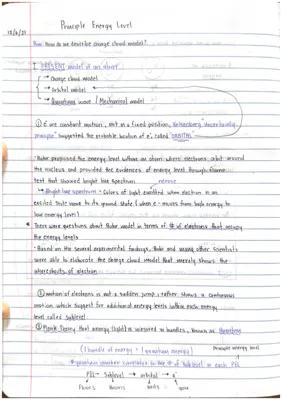 Principle Energy Level
12/6/21
How do we describe charge cloud model?
I. PRESENT model of an atom
→ Charge cloud model
→ Orbital model
→ wave / Mechanical model
① e⁻ are constant motion, not in a fixed position, Heisenberg's Uncertainty
principle suggested the probable location of e⁻, called ORBITAL
· Bohr proposed the energy level within an atom where electrons orbit around
the nucleus and provided the evidences of energy level through flame
test that showed bright line spectrum
↳ Bright line spectrum - Colors of light emitted when electron in an
excited state move to its ground state (when e⁻ moves from high energy to
low energy level)
There were questions about Bohr model in terms of # of electrons that occupy
the energy levels
· Based on the several experimental findings, Bohr and many other scientists
were able to elaborate the charge cloud model that merely shows the
of electron
① motion of electrons is not a sudden jump, rather shows a continuous
motion which suggest for additional energy levels within each energy
level called Sublevel.
② Planck Theory that energy (light) is measured in bundles, known as
(1 bundle of energy = 1 quantum energy)
Principle energy level
quantum number correlates to the # of sublevel in each PEL
PEL → Sublevel → orbital → e⁻
Floors Rooms beds